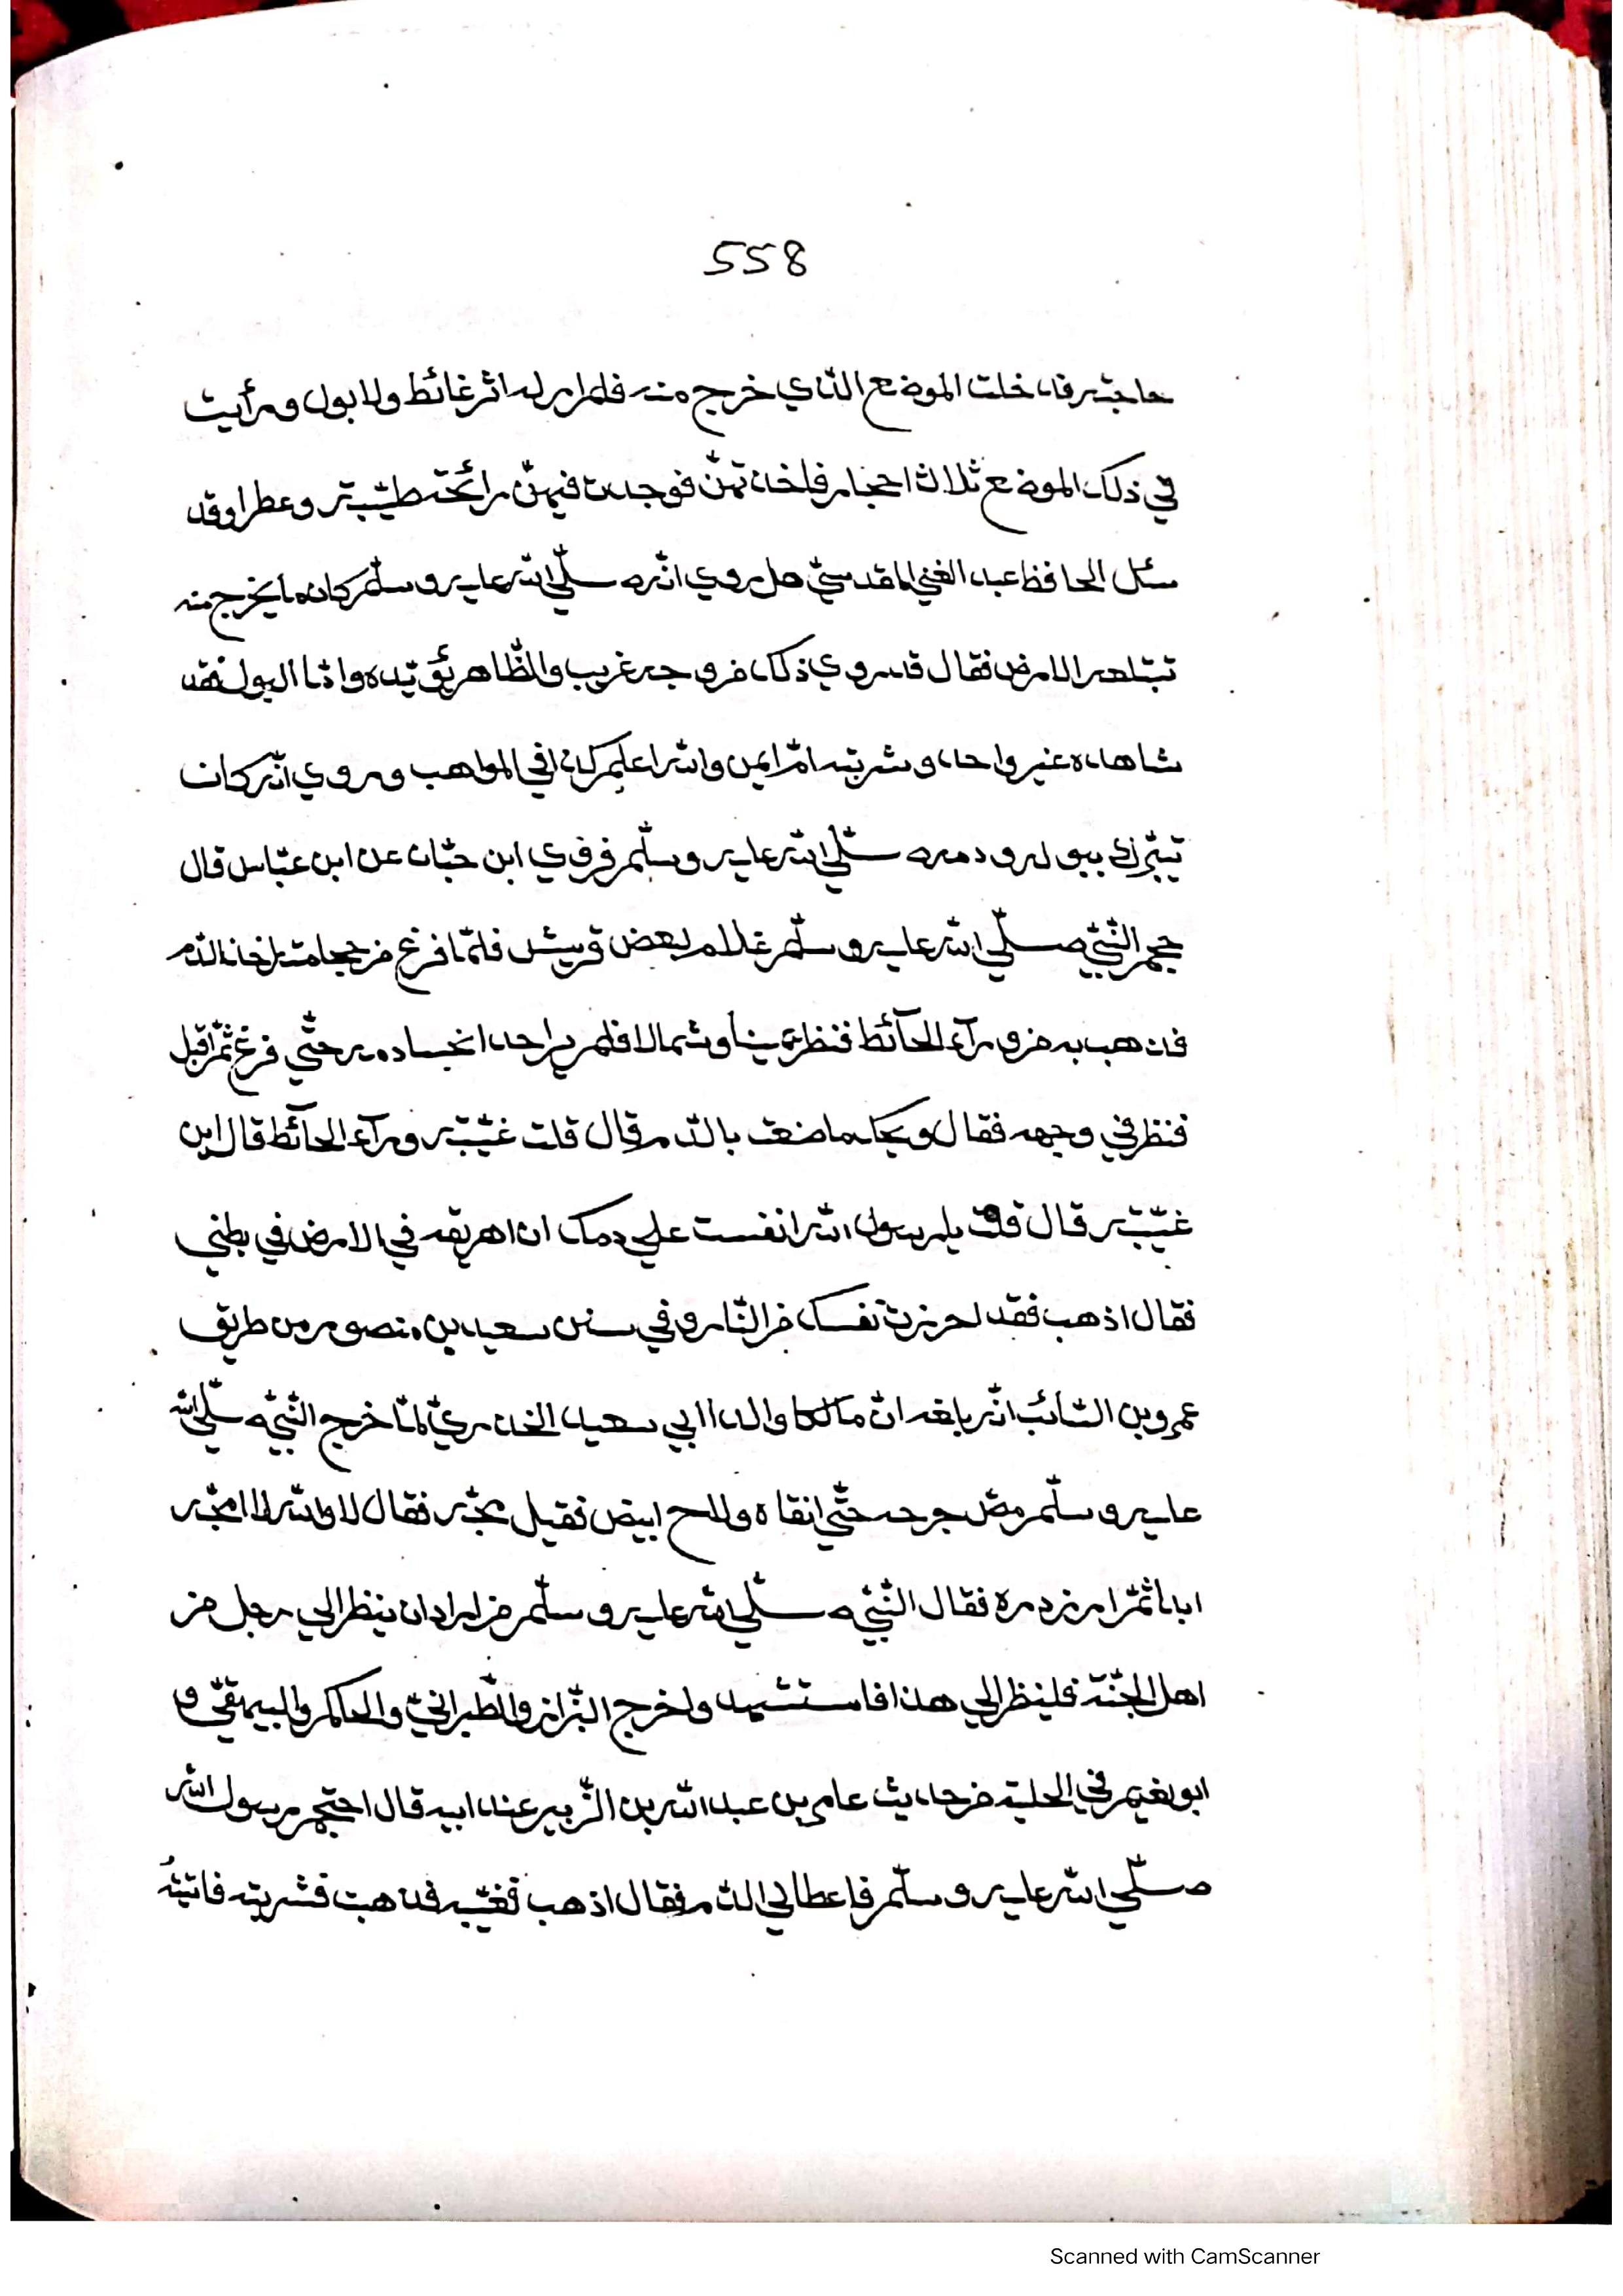 558
حاجته فدخلت الموضع الّذي خرج منه فلم ار له اثر غائط ولا بول ورأيت
في ذلك الموضع ثلاث احجار فاخذتهنّ فوجدت فيهنّ رائحة طيّبة وعطرا وقد
سئل الحافظ عبد الغني المقدسيّ هل روي انّه صلّي الله عليه وسلّم كان ما يخرج منه
تبتلعه الارض فقال قد روي ذلك من وجه غريب والظّاهر يؤيّده وامّا البول فقد
شاهده غير واحد وشربته امّ ايمن والله اعلم كذا في المواهب وروي انّه كان
يتبّرك ببوله ودمه صلّي الله عليه وسلّم فروي ابن حبّان عن ابن عبّاس قال
حجم النّبيّ صلّي الله عليه وسلّم غلام لبعض قريش فلمّا فرغ من حجامته اخذ الدّم
فذهب به من ورآء الحآئط فنظر يمينا وشمالا فلم ير احدا تحسا دمه حتّي فرغ ثمّ اقبل
فنظر في وجهه فقال ويحك ما صنعت بالدّم قال قلت غيّبته ورآء الحآئط قال اين
غيّبته قال قلت يا رسول الله انفست علي دمك ان اهريقه في الارض في بطني
فقال اذهب فقد احرزت نفسك من النّار وفي سنن سعيد بن منصور من طريق
عمرو بن السّائب انّه بلغه انّ مالكا والد ابي سعيد الخدريّ لمّا خرج النّبيّ صلّي الله
عليه وسلّم مصّ جرحه حتّي انقاه ولاح ابيض فقيل مجّه فقال لا والله لا امجّه
ابدا ثمّ ازدرده فقال النّبيّ صلّي الله عليه وسلّم من اراد ان ينظر الي رجل من
اهل الجنّة فلينظر الي هذا فاستشهد واخرج البزّاز والطّبرانيّ والحاكم والبيهقيّ و
ابو نعيم في الحلية من حديث عامر بن عبد الله بن الزّبير عن ابيه قال احتجم رسول الله
صلّي الله عليه وسلّم فاعطاني الدّم فقال اذهب فغيّبه فذهبت فشربته فاتيته
Scanned with CamScanner